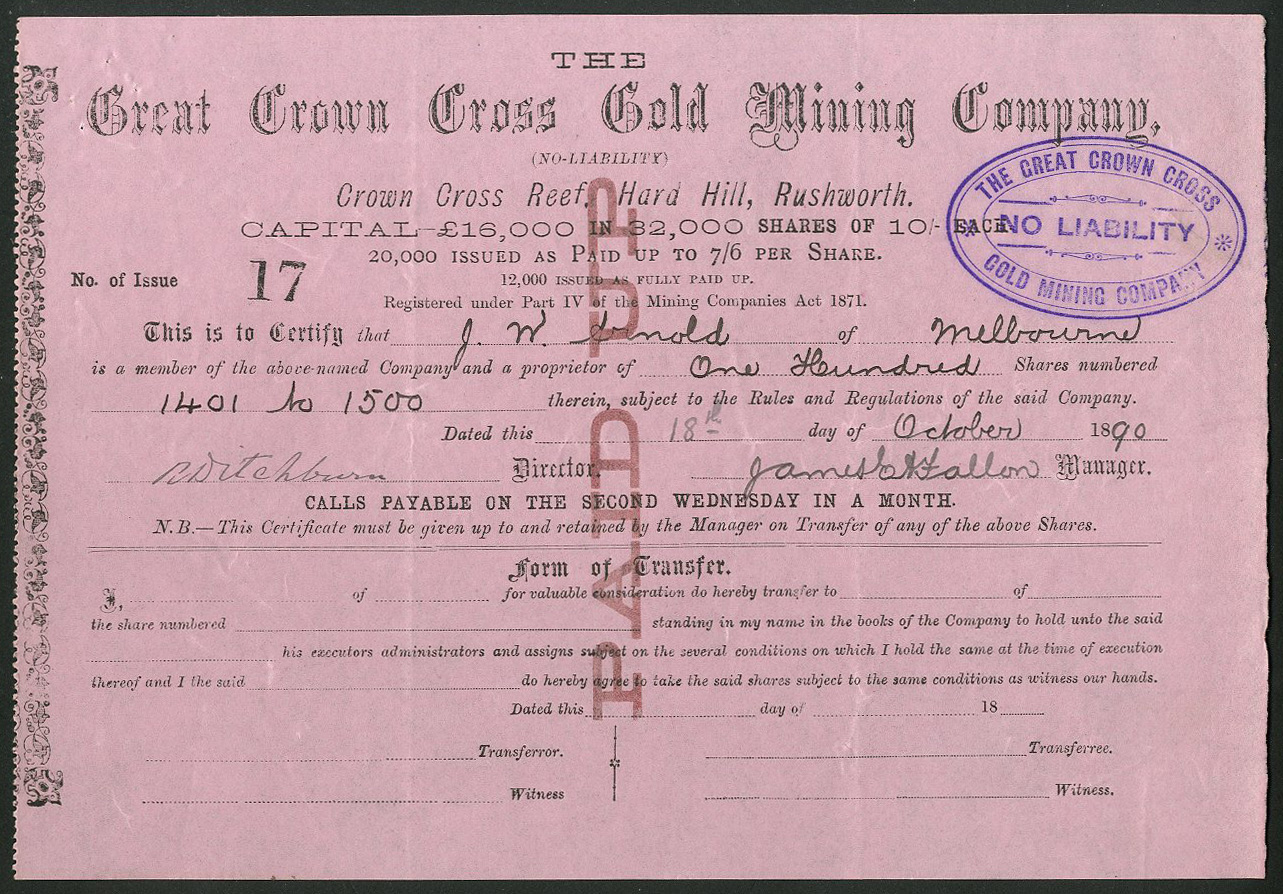 THE
Great Crown Cross Gold Mining Company,
(NO-LIABILITY)
Crown Cross Reef, Hard Hill, Rushworth.
CAPITAL—£16,000 IN 32,000 SHARES OF 10/- EACH.
20,000 ISSUED AS PAID UP TO 7/6 PER SHARE.
No. of Issue 17
12,000 ISSUED AS FULLY PAID UP.
Registered under Part IV of the Mining Companies Act 1871.
THE GREAT CROWN CROSS
NO LIABILITY
GOLD MINING COMPANY
PAID UP
This is to Certify that J. W. Arnold of Melbourne
is a member of the above-named Company and a proprietor of One Hundred Shares numbered
1401 to 1500 therein, subject to the Rules and Regulations of the said Company.
Dated this 18th day of October 1890
Ditchburn Director. James Fallon Manager.
CALLS PAYABLE ON THE SECOND WEDNESDAY IN A MONTH.
N.B.—This Certificate must be given up to and retained by the Manager on Transfer of any of the above Shares.
Form of Transfer.
I, of for valuable consideration do hereby transfer to of
the share numbered standing in my name in the books of the Company to hold unto the said
his executors administrators and assigns subject on the several conditions on which I hold the same at the time of execution
thereof and I the said do hereby agree to take the said shares subject to the same conditions as witness our hands.
Dated this day of 18
Transferror. Transferree.
Witness Witness.